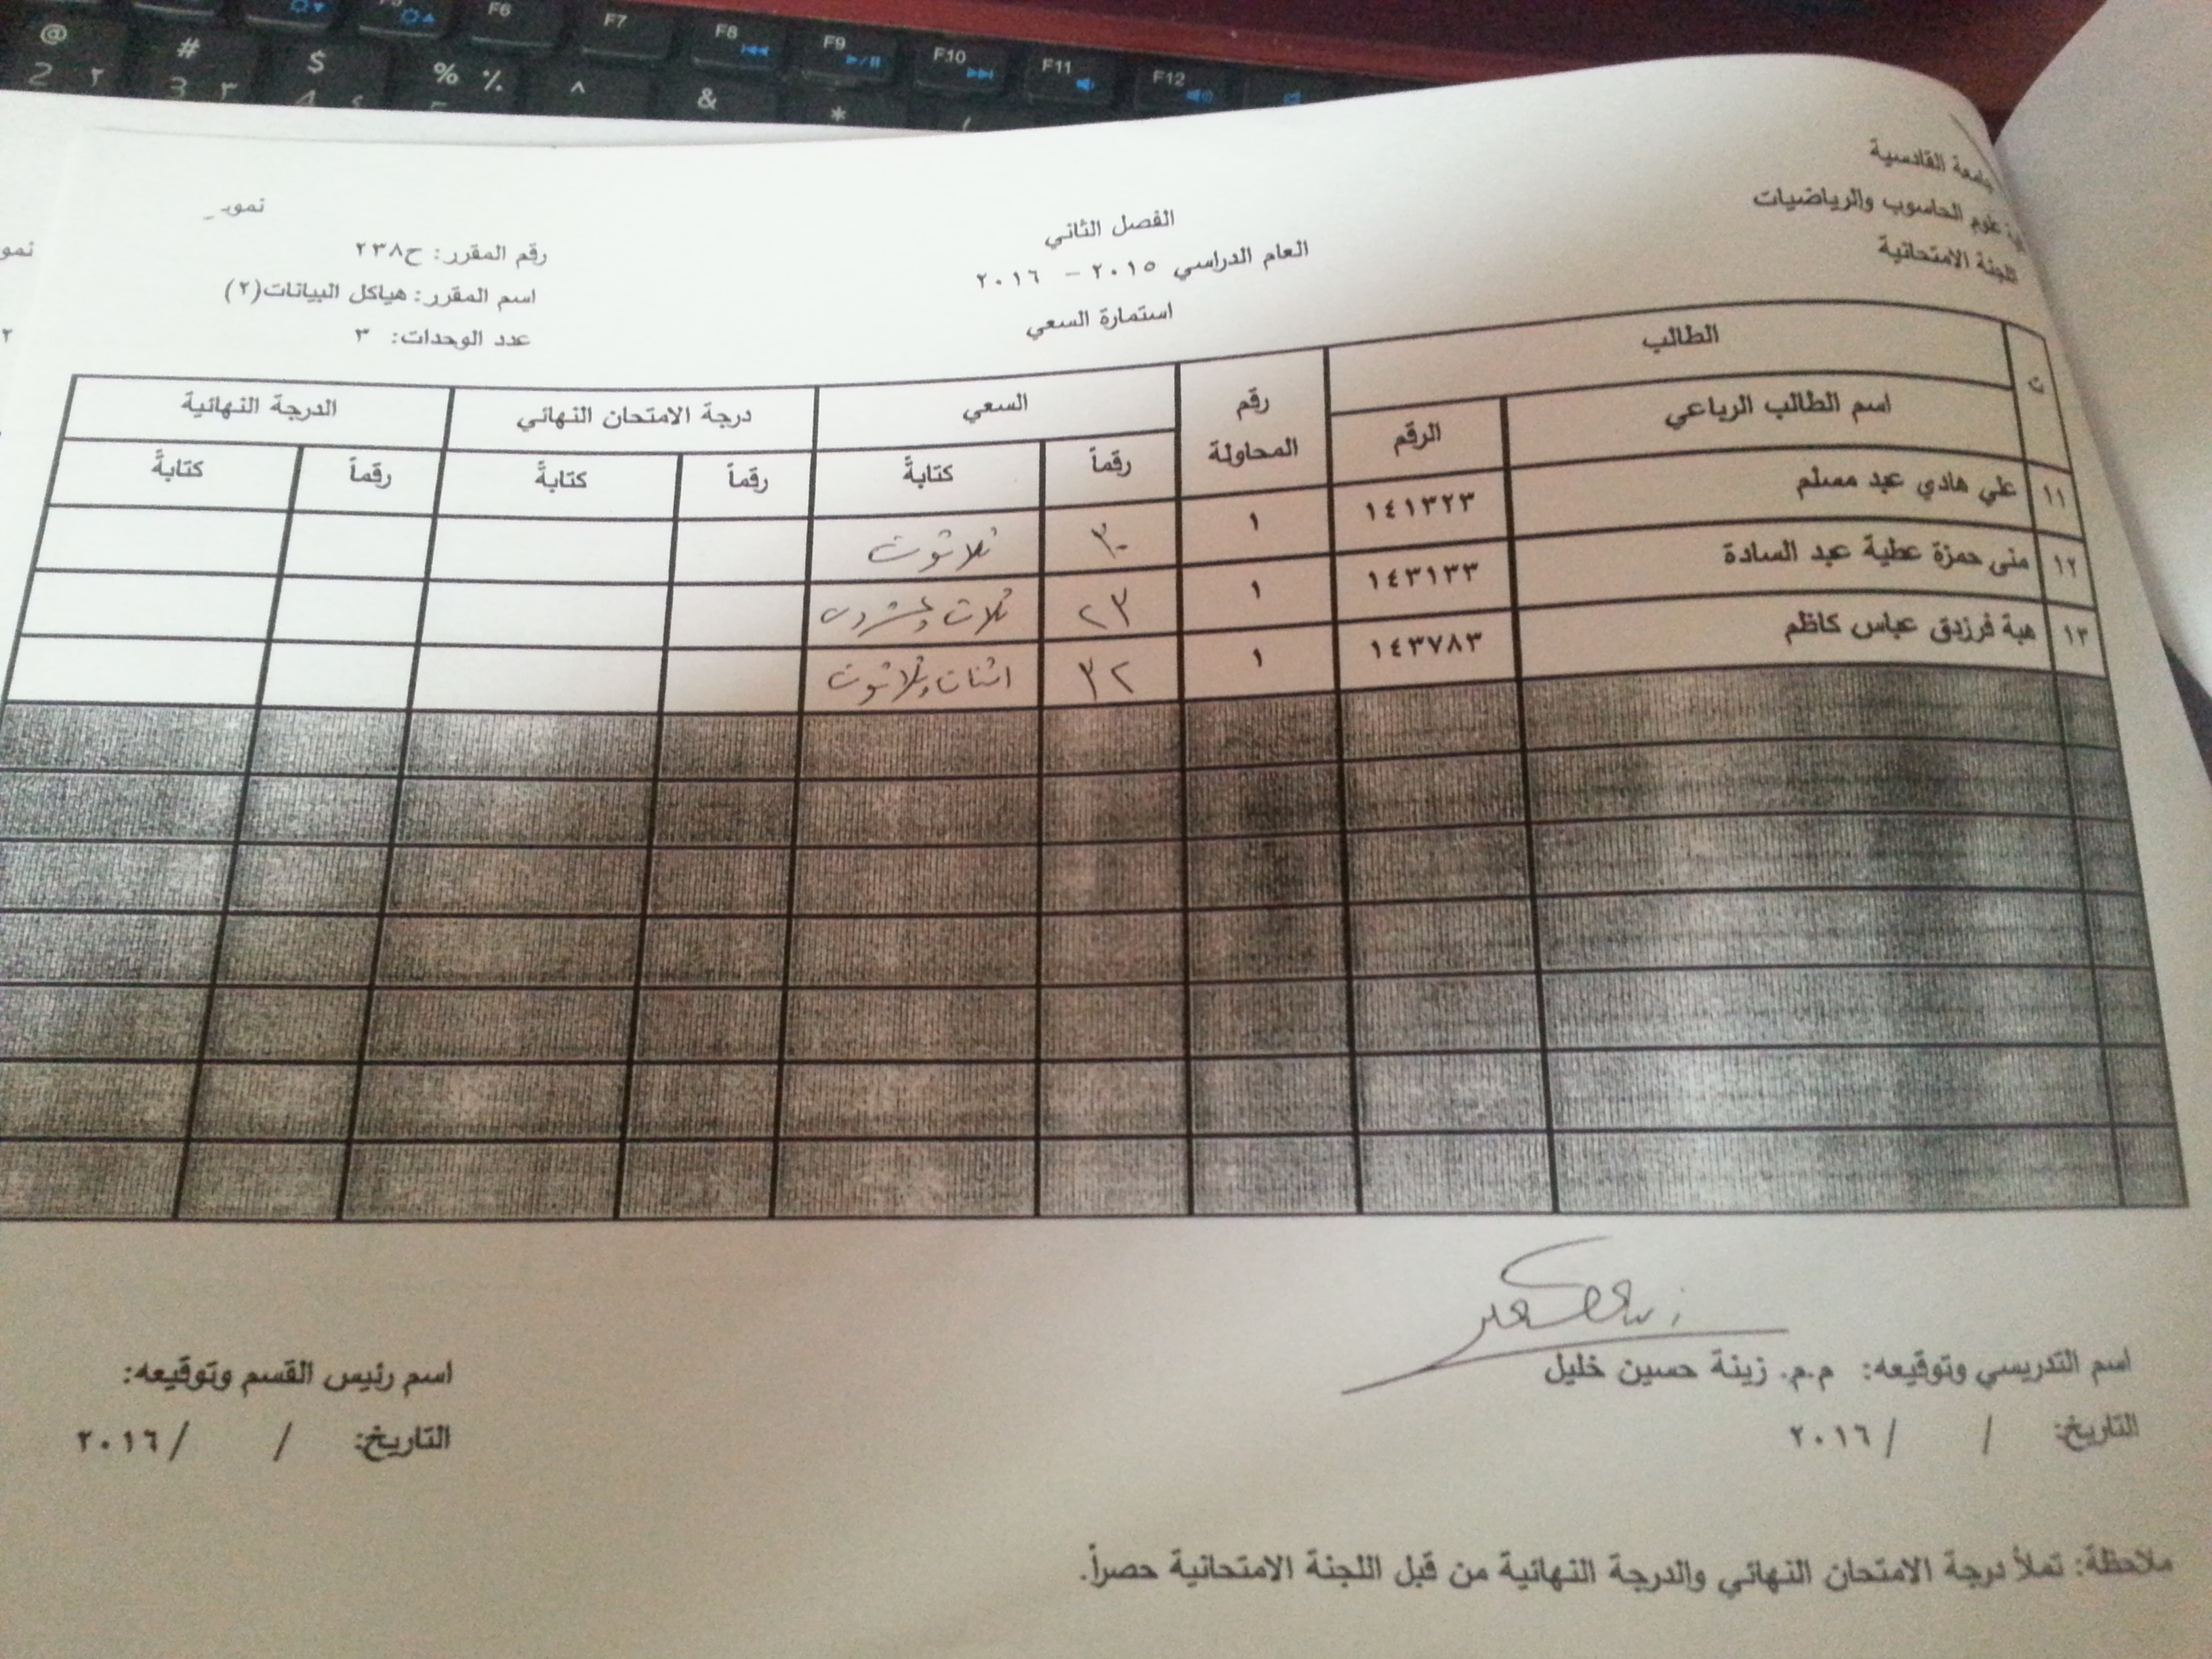 جامعة القادسية
علوم الحاسوب والرياضيات
اللجنة الامتحانية
الفصل الثاني
العام الدراسي ٢٠١٥ - ٢٠١٦
استمارة السعي
رقم المقرر: ح٢٣٨
اسم المقرر: هياكل البيانات(٢)
عدد الوحدات: ٣
ت الطالب رقم المحاولة السعي درجة الامتحان النهائي الدرجة النهائية
اسم الطالب الرباعي الرقم رقماً كتابةً رقماً كتابةً رقماً كتابةً
١١ علي هادي عبد مسلم ١٤١٣٢٣ ١ ٣٠ ثلاثون
١٢ منى حمزة عطية عبد السادة ١٤٣١٣٣ ١ ٢٣ ثلاث وعشرون
١٣ هبة فرزدق عباس كاظم ١٤٣٧٨٣ ١ ٣٢ اثنان وثلاثون
اسم التدريسي وتوقيعه: م.م. زينة حسين خليل
التاريخ: / / ٢٠١٦
اسم رئيس القسم وتوقيعه:
التاريخ: / / ٢٠١٦
ملاحظة: تملأ درجة الامتحان النهائي والدرجة النهائية من قبل اللجنة الامتحانية حصراً.
@ # $ % ٪ ^ & *
2 ٢ 3 ٣
F6 F7 F8 F9 F10 F11 F12